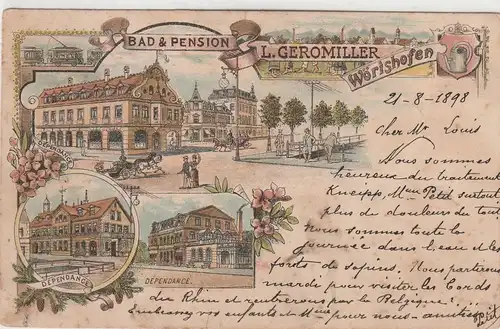 BAD & PENSION
L. GEROMILLER
Wörishofen
21-8-1898
Cher Mr Louis
Nous sommes
heureux du traitement
Kneipp, Mme Petit surtout
plus de douleurs du tout
nous sommes toute la
journée dans l'eau et les
forêts de sapins. Nous partirons
mardi pour visiter les bords
du Rhin et rentrerons par la Belgique
Embrassez vos enfants et Mme pour nous - amitiés
Petit
DEPENDANCE
DEPENDANCE.